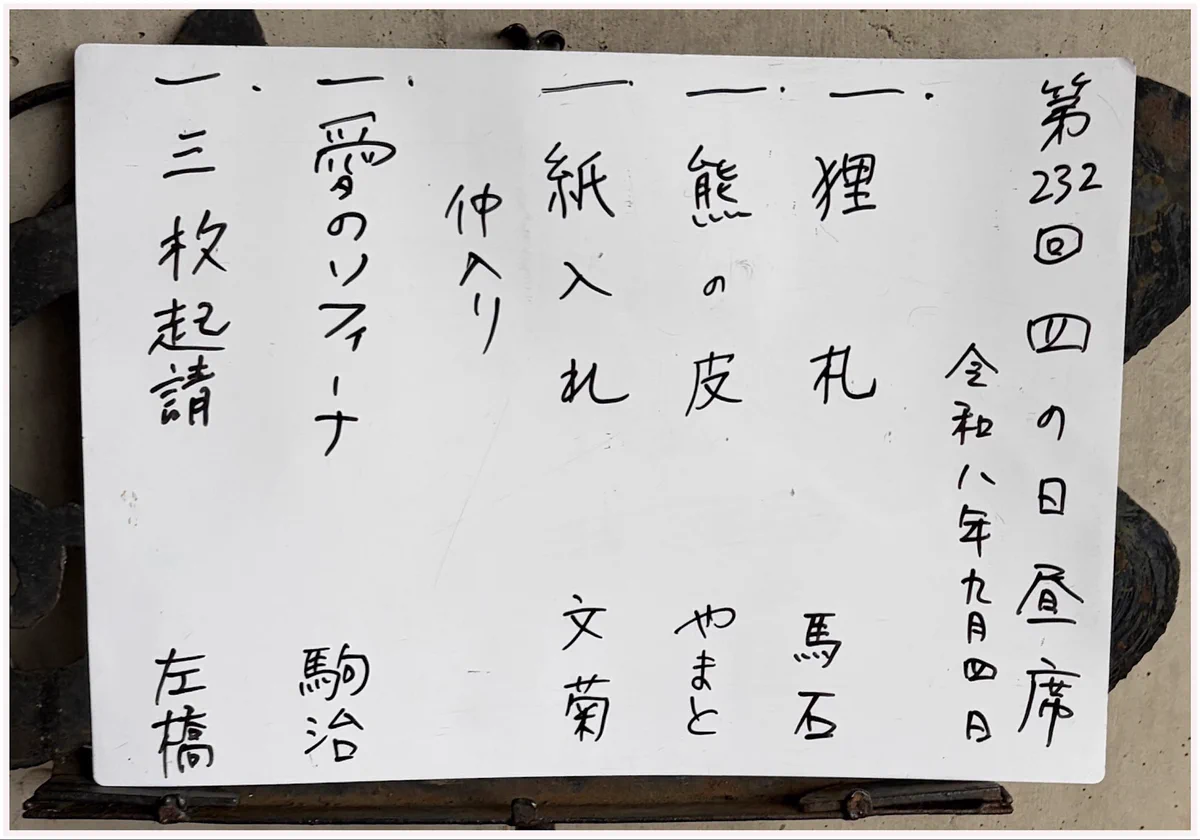 第232回 四の日昼席
令和八年九月四日
一. 狸札 馬石
一. 熊の皮 やまと
一. 紙入れ 文菊
仲入り
一. 愛のソフィーナ 駒治
一. 三枚起請 左橋